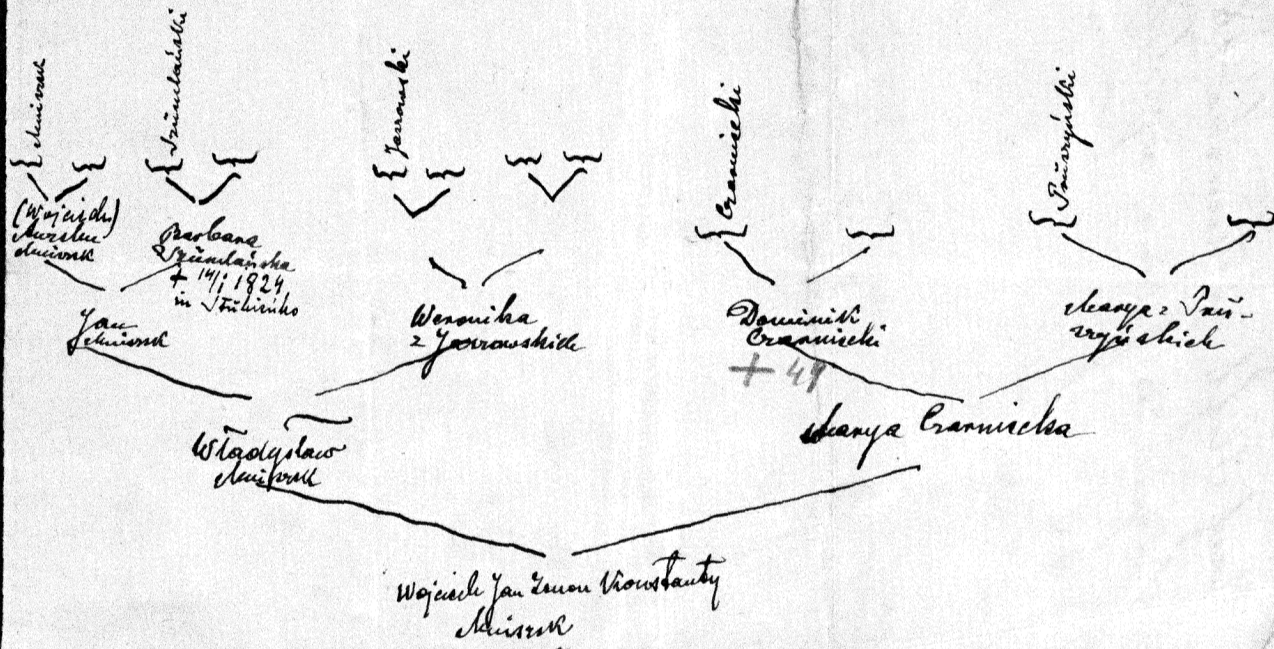 Mniszek
Szumlański
Jaxrowski
Czarniecki
Pruszyński
(Wojciech)
Mniszek
Barbara
Szumlańska
+ 14/I 1824
in
Jan
Mniszek
Weronika
z
Dominik
Czarniecki
+ 49
Marya z Pru-
szyńskich
Władysław
Mniszek
Marya Czarniecka
Wojciech Jan Zenon Konstanty
Mniszek